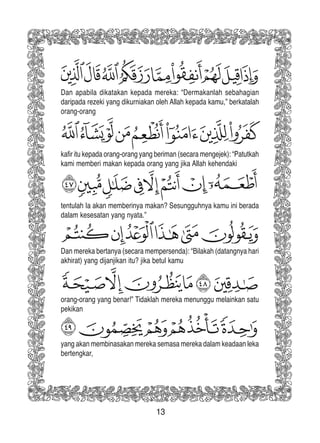 وَإِذَا قِيلَ لَهُمْ أَنفِقُوا۟ مِمَّا رَزَقَكُمُ ٱللَّهُ قَالَ ٱلَّذِينَ
Dan apabila dikatakan kepada mereka: “Dermakanlah sebahagian
daripada rezeki yang dikurniakan oleh Allah kepada kamu,” berkatalah
orang-orang
كَفَرُوا۟ لِلَّذِينَ ءَامَنُوٓا۟ أَنُطْعِمُ مَن لَّوْ يَشَآءُ ٱللَّهُ
kafir itu kepada orang-orang yang beriman (secara mengejek): “Patutkah
kami memberi makan kepada orang yang jika Allah kehendaki
أَطْعَمَهُۥٓ إِنْ أَنتُمْ إِلَّا فِى ضَلَـٰلٍ مُّبِينٍ ٤٧
tentulah Ia akan memberinya makan? Sesungguhnya kamu ini berada
dalam kesesatan yang nyata.”
وَيَقُولُونَ مَتَىٰ هَـٰذَا ٱلْوَعْدُ إِن كُنتُمْ
Dan mereka bertanya (secara mempersenda): “Bilakah (datangnya hari
akhirat) yang dijanjikan itu? jika betul kamu
صَـٰدِقِينَ ٤٨ مَا يَنظُرُونَ إِلَّا صَيْحَةً
orang-orang yang benar!” Tidaklah mereka menunggu melainkan satu
pekikan
وَٰحِدَةً تَأْخُذُهُمْ وَهُمْ يَخِصِّمُونَ ٤٩
yang akan membinasakan mereka semasa mereka dalam keadaan leka
bertengkar,
13